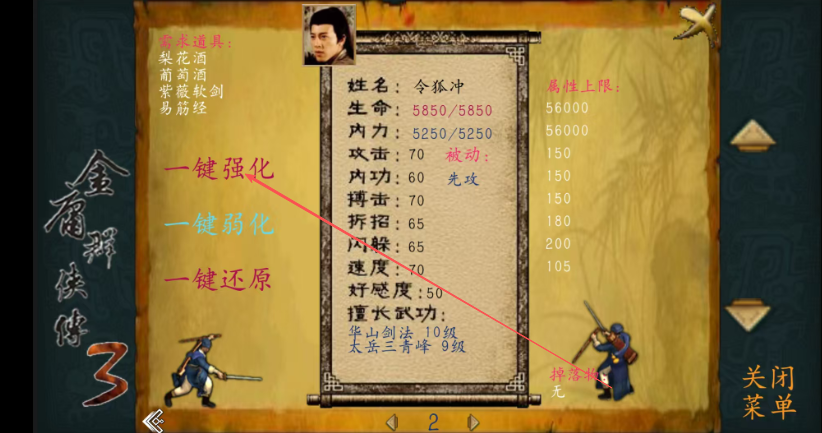 需求道具：
梨花酒
葡萄酒
紫薇软剑
易筋经
一键强化
一键弱化
一键还原
金庸群侠传
3
姓名：令狐冲
生命：5850/5850
内力：5250/5250
攻击：70 被动：
内功：60 先攻
搏击：70
拆招：65
闪躲：65
速度：70
好感度：50
擅长武功：
华山剑法 10级
太岳三青峰 9级
2
属性上限：
56000
56000
150
150
150
180
200
105
掉落物
无
关闭
菜单